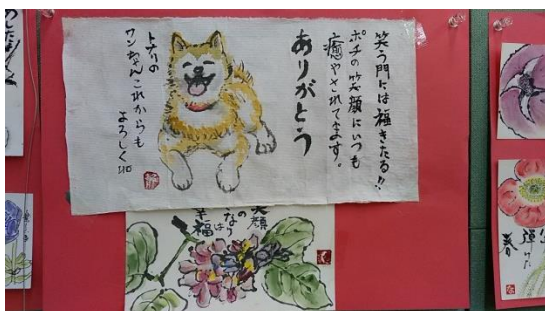 笑う門には福きたる!!
ポチの笑顔にいつも
癒やされてます。
ありがとう
トナリの
ワンちゃんこれからも
よろしく
笑顔
の
となりは
幸福
弾けた
春